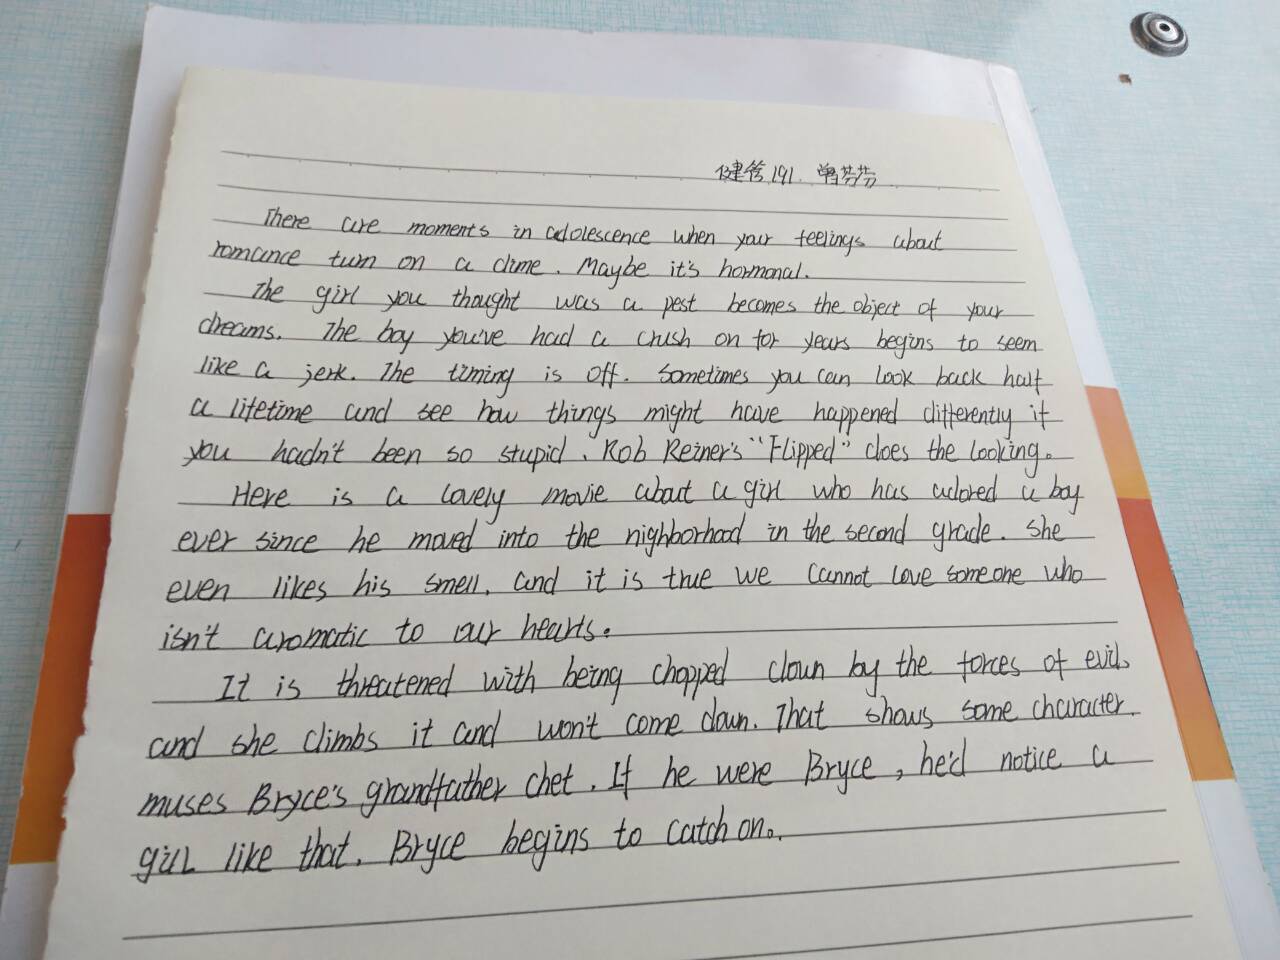 健管191 曾芳芳
There are moments in adolescence when your feelings about
romance turn on a dime. Maybe it's hormonal.
The girl you thought was a pest becomes the object of your
dreams. The boy you've had a crush on for years begins to seem
like a jerk. The timing is off. Sometimes you can look back half
a lifetime and see how things might have happened differently if
you hadn't been so stupid. Rob Reiner's "Flipped" does the looking.
Here is a lovely movie about a girl who has adored a boy
ever since he moved into the nighborhood in the second grade. She
even likes his smell, and it is true we cannot love someone who
isn't aromatic to our hearts.
It is threatened with being chopped down by the forces of evil,
and she climbs it and won't come down. That shows some character.
muses Bryce's grandfather chet. If he were Bryce, he'd notice a
girl like that. Bryce begins to catch on.